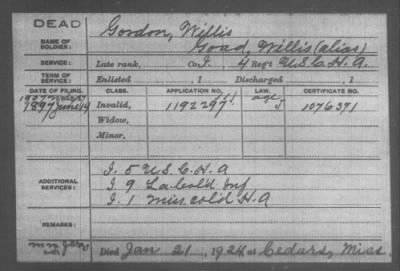 DEAD
NAME OF SOLDIER: Gordon, Willis
Goad, Willis (alias)
SERVICE: Late rank, Co. I, 4 Reg't U.S.C.H.A.
TERM OF SERVICE: Enlisted , 1 Discharged , 1
DATE OF FILING. CLASS. APPLICATION NO. LAW. CERTIFICATE NO.
1897 June 14 Invalid, 1192297 1076371
Widow,
Minor,
ADDITIONAL SERVICES: I. 5 U.S.C.H.A
I 9 La. Col'd Inf
I. 1 Miss. col'd H.A
REMARKS:
Died Jan 21, 1924 at Cedars, Miss.